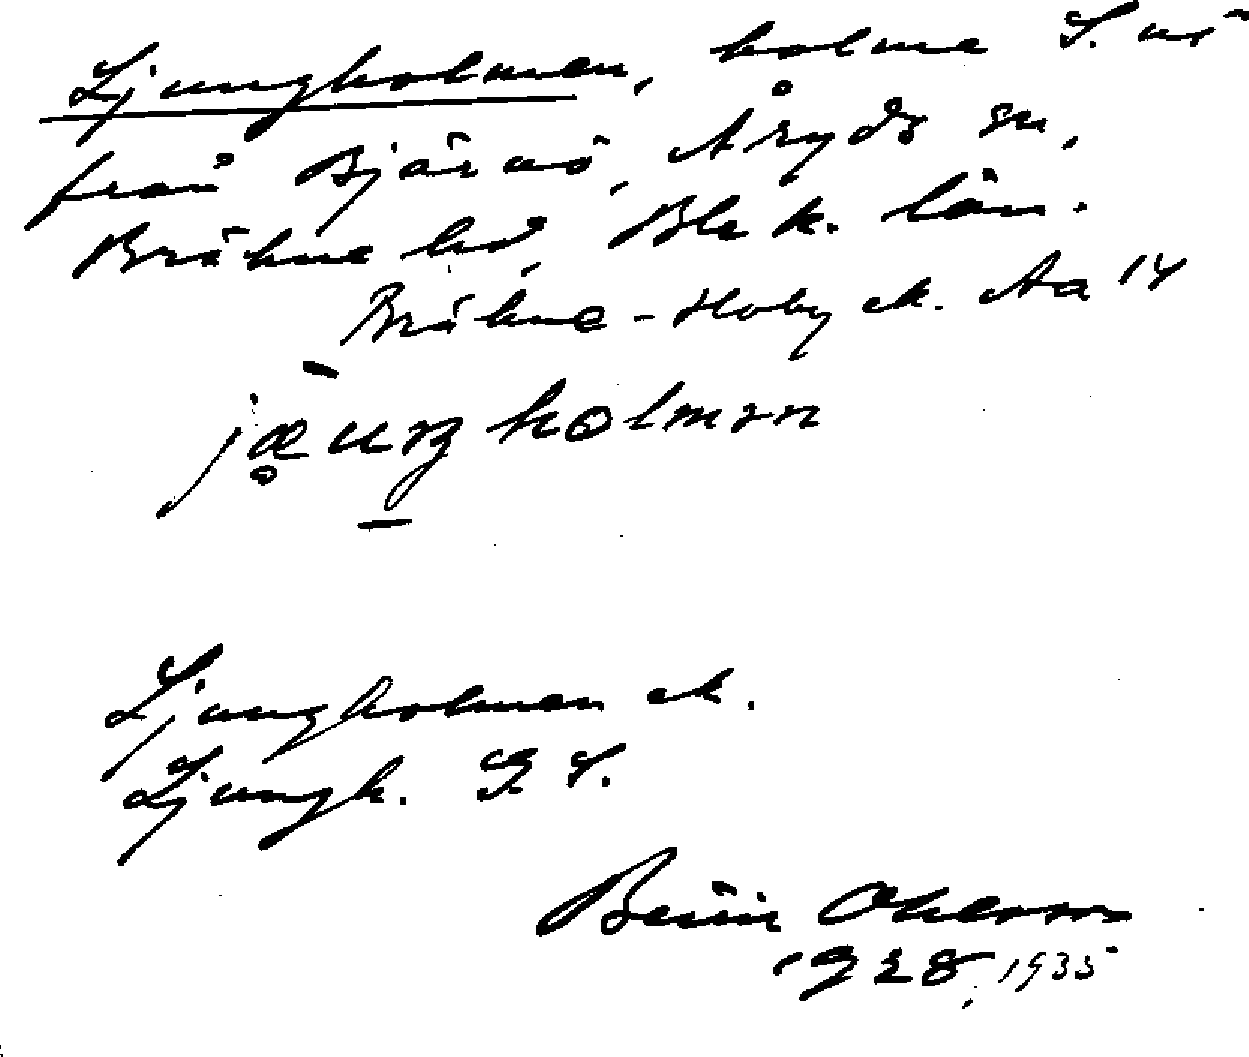 Ljungholmen, holme S. ut
från Bjärnö, Åryds sn,
Bräkne hd, Blek. län.
Bräkne-Hoby ek. Aa 14
Ljungholmen ek.
Ljungh. GS.
Ohlsson
1928, 1935